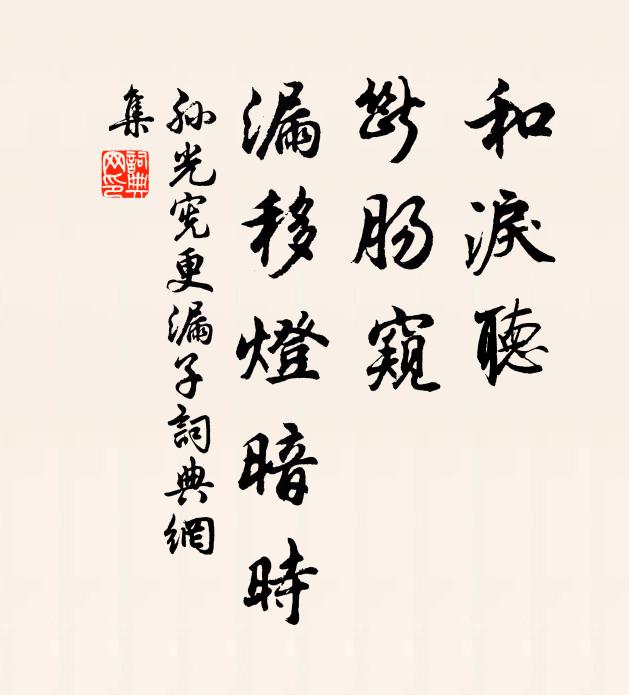 和淚聽
斷腸窺
漏移燈暗時
孫光憲更漏子詞典網
集
詞典網印